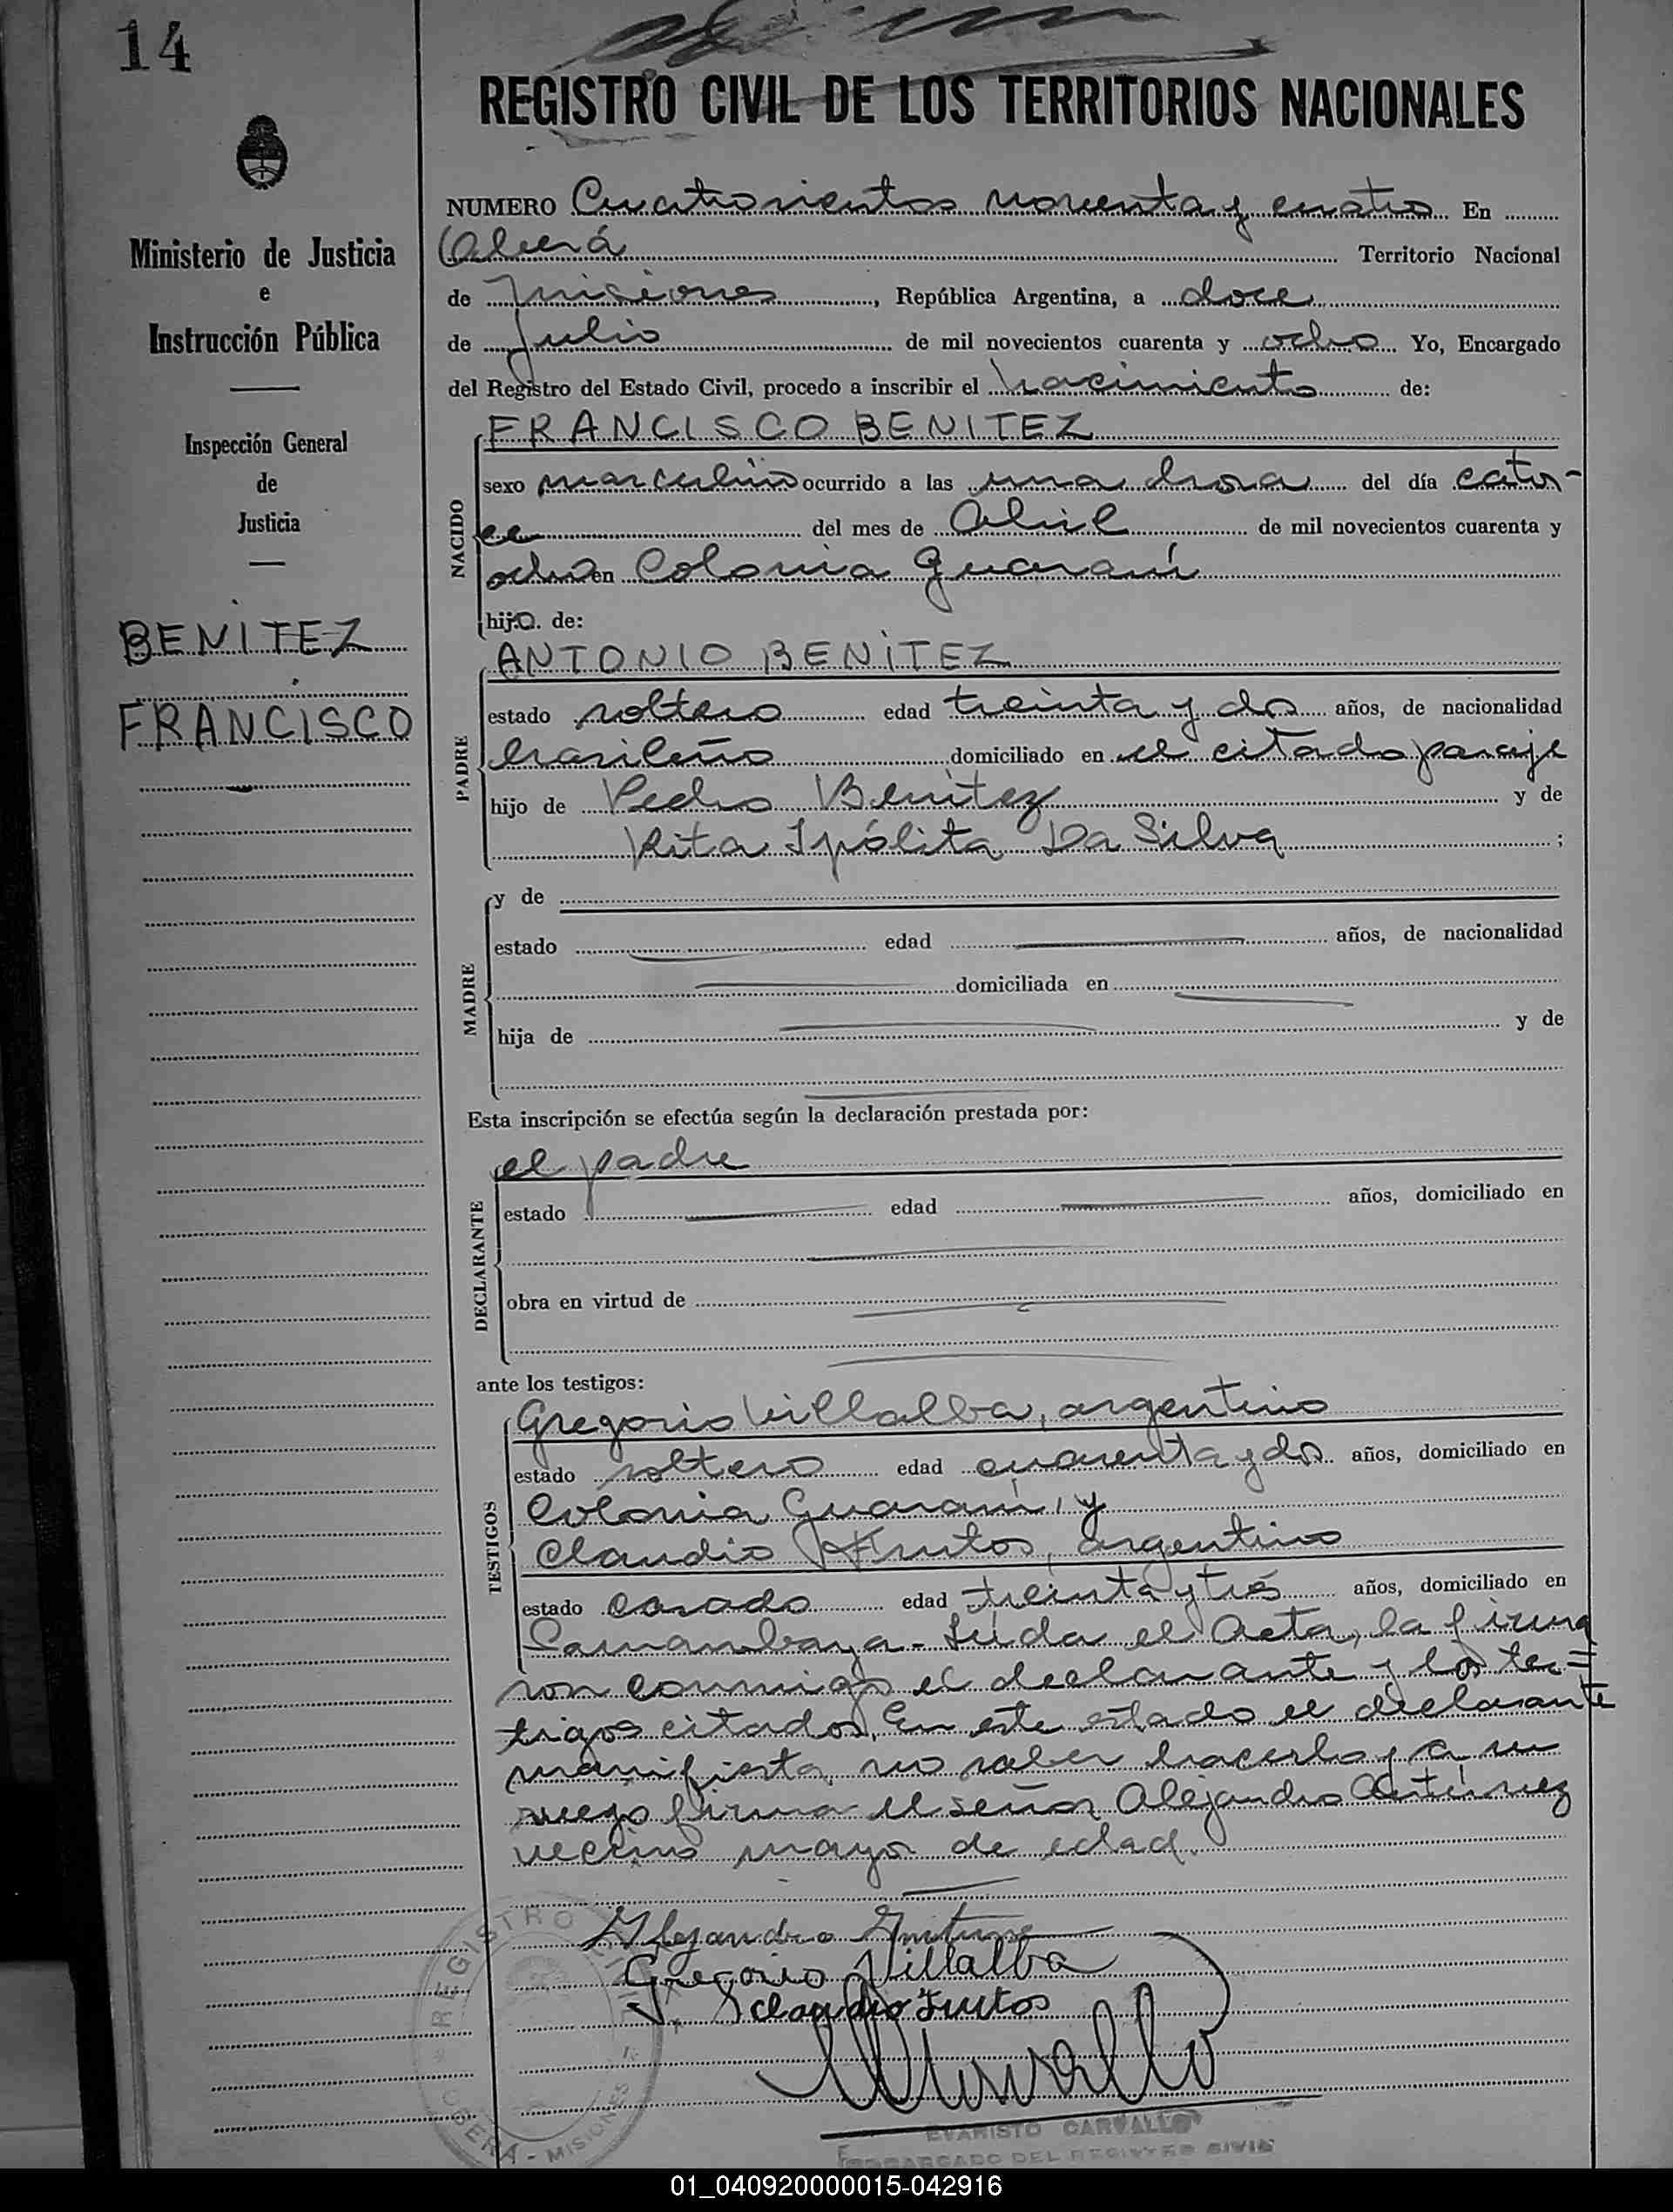 14
REGISTRO CIVIL DE LOS TERRITORIOS NACIONALES
Ministerio de Justicia
e
Instrucción Pública
Inspección General
de
Justicia
BENITEZ
FRANCISCO
NUMERO Cuatrocientos noventa y cuatro En
Oberá Territorio Nacional
de Misiones, República Argentina, a doce
de Julio de mil novecientos cuarenta y ocho Yo, Encargado
del Registro del Estado Civil, procedo a inscribir el nacimiento de:
NACIDO
FRANCISCO BENITEZ
sexo masculino ocurrido a las una hora del día cator-
ce del mes de Abril de mil novecientos cuarenta y
ocho en Colonia Guaraní
hijo. de:
PADRE
ANTONIO BENITEZ
estado soltero edad treinta y dos años, de nacionalidad
brasileño domiciliado en el citado paraje
hijo de Pedro Benítez y de
Rita Ipólita Da Silva ;
MADRE
y de
estado edad años, de nacionalidad
domiciliada en
hija de y de
Esta inscripción se efectúa según la declaración prestada por:
DECLARANTE
el padre
estado edad años, domiciliado en
obra en virtud de
ante los testigos:
TESTIGOS
Gregorio Villalba, argentino
estado soltero edad cuarenta y dos años, domiciliado en
Colonia Guaraní, y
Claudio Frutos, argentino
estado casado edad treinta y tres años, domiciliado en
Samambaya - Leída el Acta, la firma
ron conmigo el declarante y los tes=
tigos citados, En este estado el declarante
manifiesta no saber hacerlo y a su
ruego firma el señor Alejandro Antúnez
vecino mayor de edad.
Alejandro
Gregorio Villalba
Claudio Frutos
REGISTRO
OBERÁ - MISIONES
EVARISTO CARVALLO
ENCARGADO DEL REGISTRO CIVIL
01_040920000015-042916